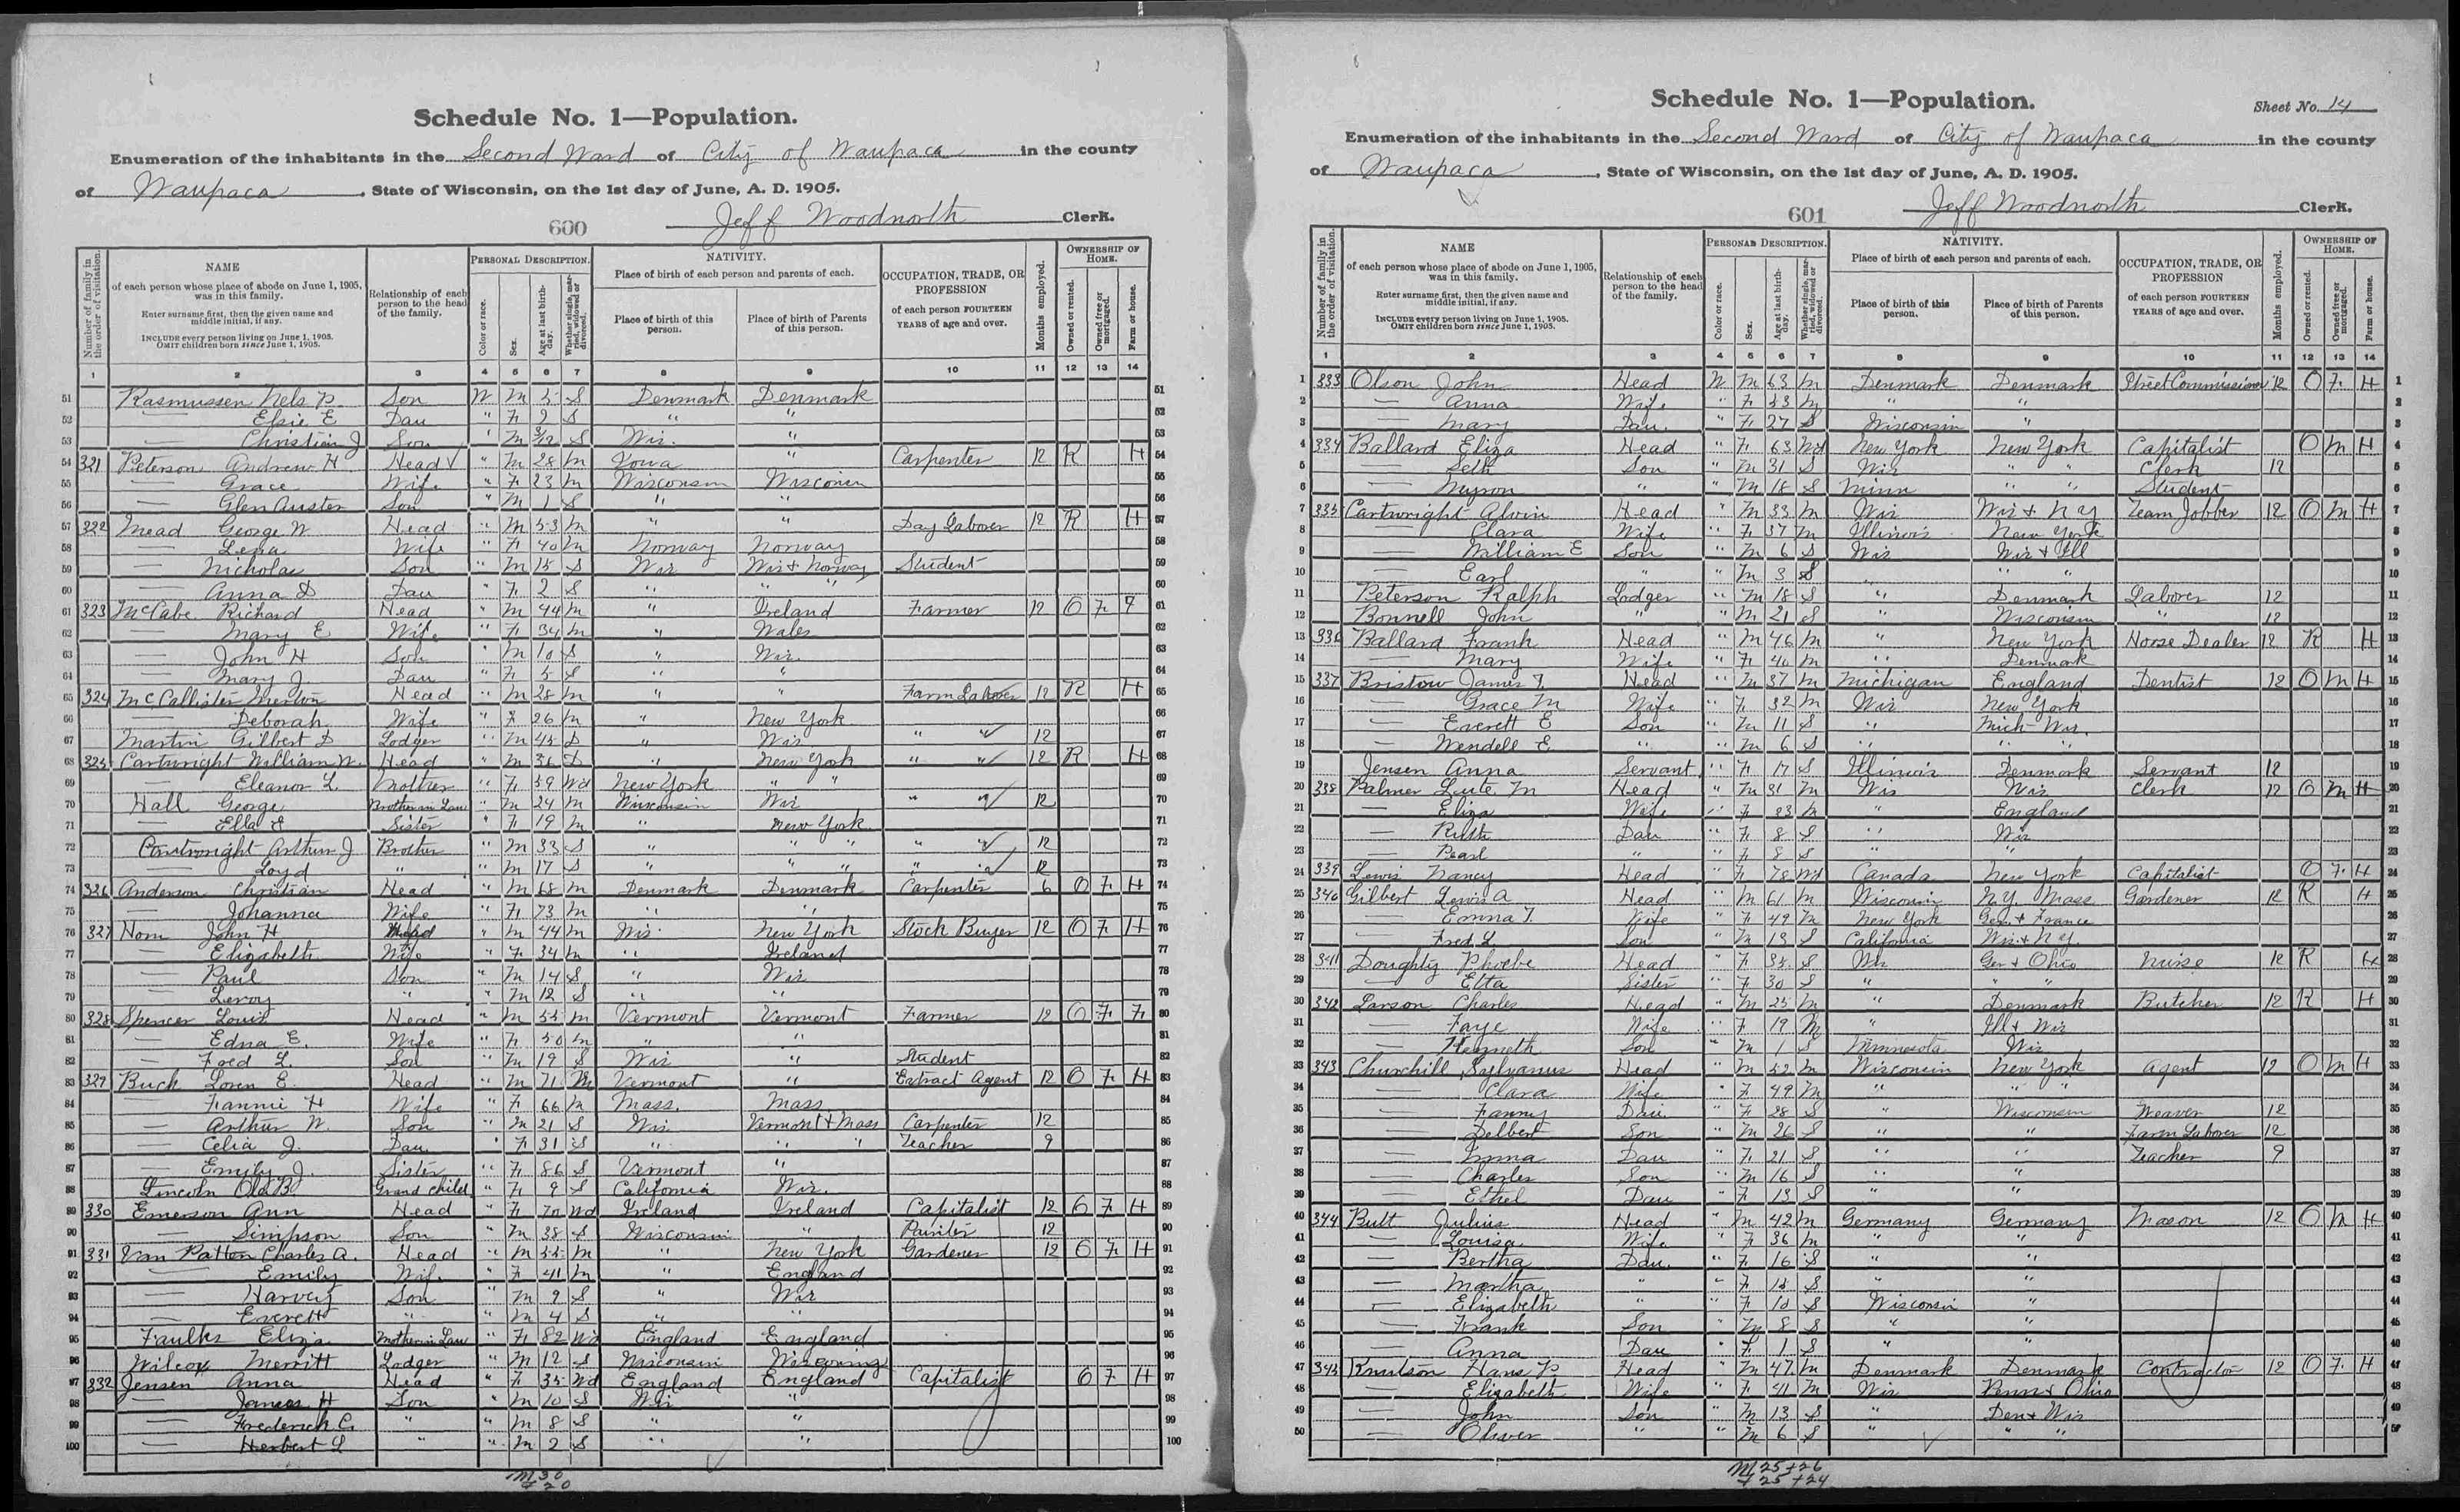 Schedule No. 1—Population.
Enumeration of the inhabitants in the Second Ward of City of Waupaca in the county
of Waupaca, State of Wisconsin, on the 1st day of June, A. D. 1905.
600 Jeff Woodnorth Clerk.
Number of family in the order of visitation.
NAME
of each person whose place of abode on June 1, 1905, was in this family.
Enter surname first, then the given name and middle initial, if any.
INCLUDE every person living on June 1, 1905.
OMIT children born since June 1, 1905.
Relationship of each person to the head of the family.
PERSONAL DESCRIPTION.
Color or race.
Sex.
Age at last birthday.
Whether single, married, widowed or divorced.
NATIVITY.
Place of birth of each person and parents of each.
Place of birth of this person.
Place of birth of Parents of this person.
OCCUPATION, TRADE, OR PROFESSION
of each person FOURTEEN YEARS of age and over.
Months employed.
OWNERSHIP OF HOME.
Owned or rented.
Owned free or mortgaged.
Farm or house.
1 2 3 4 5 6 7 8 9 10 11 12 13 14
51 Rasmussen Nels P. Son W M 5 S Denmark Denmark 51
52 — Elsie E Dau " F 2 S " " 52
53 — Christian J Son " M 3/12 S Wis. " 53
54 321 Peterson Andrew H. Head " M 28 M Iowa " Carpenter 12 R H 54
55 — Grace Wife " F 23 M Wisconsin Wisconsin 55
56 — Glen Auster Son " M 1 S " " 56
57 322 Mead George W Head " M 53 M " " Day Laborer 12 R H 57
58 — Lena Wife " F 40 M Norway Norway 58
59 — Nicholas Son " M 15 S Wis Wis + Norway Student 59
60 — Anna D Dau " F 2 S " " " 60
61 323 McCabe Richard Head " M 44 M " Ireland Farmer 12 O F F 61
62 — Mary E Wife " F 34 M " Wales 62
63 — John H Son " M 10 S " Wis. 63
64 — Mary J. Dau " F 5 S " " 64
65 324 McCallister Merton Head " M 28 M " " Farm Laborer 12 R H 65
66 — Deborah Wife " F 26 M " New York 66
67 Martin Gilbert D Lodger " M 45 D " Wis " " 12 67
68 325 Cartwright William W. Head " M 36 D " New York " " 12 R H 68
69 — Eleanor L Mother " F 59 Wd New York " " 69
70 Hall George Brother in Law " M 24 M Wisconsin Wis " " 12 70
71 — Ella E Sister " F 19 M " New York 71
72 Cartwright Arthur J Brother " M 33 S " " " " " 12 72
73 — Loyd " " M 17 S " " " " " 12 73
74 326 Anderson Christian Head " M 68 M Denmark Denmark Carpenter 6 O F H 74
75 — Johanna Wife " F 73 M " " 75
76 327 Hom John H Head " M 44 M Wis New York Stock Buyer 12 O F H 76
77 — Elizabeth Wife " F 34 M " Ireland 77
78 — Paul Son " M 14 S " Wis 78
79 — Leroy " " M 12 S " " 79
80 328 Spencer Louis Head " M 55 M Vermont Vermont Farmer 12 O F F 80
81 — Edna E. Wife " F 50 M " " 81
82 — Fred L. Son " M 19 S Wis " Student 82
83 329 Buck Loren E. Head " M 71 M Vermont " Extract Agent 12 O F H 83
84 — Fannie H Wife " F 66 M Mass. Mass 84
85 — Arthur W. Son " M 21 S Wis Vermont + Mass Carpenter 12 85
86 — Celia J. Dau. " F 31 S " " " Teacher 9 86
87 — Emily J. Sister " F 86 S Vermont " 87
88 Lincoln Ola B. Grand child " F 9 S California Wis. 88
89 330 Emerson Ann Head " F 70 Wd Ireland Ireland Capitalist 12 O F H 89
90 — Simpson Son " M 38 S Wisconsin " Painter 12 90
91 331 Van Patten Charles A. Head " M 55 M " New York Gardener 12 O F H 91
92 — Emily Wife " F 41 M " England 92
93 — Harvey Son " M 9 S " Wis 93
94 — Everett " " M 4 S " " 94
95 Faulks Eliza Mother in Law " F 82 Wd England England 95
96 Wilcox Merritt Lodger " M 12 S Wisconsin 96
97 332 Jensen Anna Head " F 35 Wd England England Capitalist O F H 97
98 — James H Son " M 10 S Wis " 98
99 — Frederick C. " " M 8 S " " 99
100 — Herbert L " " M 2 S " " 100
M 30
F 20
Schedule No. 1—Population.
Sheet No. 14
Enumeration of the inhabitants in the Second Ward of City of Waupaca in the county
of Waupaca, State of Wisconsin, on the 1st day of June, A. D. 1905.
601 Jeff Woodnorth Clerk.
Number of family in the order of visitation.
NAME
of each person whose place of abode on June 1, 1905, was in this family.
Enter surname first, then the given name and middle initial, if any.
INCLUDE every person living on June 1, 1905.
OMIT children born since June 1, 1905.
Relationship of each person to the head of the family.
PERSONAL DESCRIPTION.
Color or race.
Sex.
Age at last birthday.
Whether single, married, widowed or divorced.
NATIVITY.
Place of birth of each person and parents of each.
Place of birth of this person.
Place of birth of Parents of this person.
OCCUPATION, TRADE, OR PROFESSION
of each person FOURTEEN YEARS of age and over.
Months employed.
OWNERSHIP OF HOME.
Owned or rented.
Owned free or mortgaged.
Farm or house.
1 2 3 4 5 6 7 8 9 10 11 12 13 14
1 333 Olson John Head W M 63 M Denmark Denmark Street Commissioner 12 O F H 1
2 — Anna Wife " F 53 M " " 2
3 — Mary Dau. " F 27 S Wisconsin " 3
4 334 Ballard Eliza Head " F 63 Wd New York New York Capitalist O M H 4
5 — Seth Son " M 31 S Wis " " Clerk 12 5
6 — Myron " " M 18 S Minn " " Student 6
7 335 Cartwright Alvin Head " M 33 M Wis Wis + N Y Team Jobber 12 O M H 7
8 — Clara Wife " F 37 M Illinois New York 8
9 — William E Son " M 6 S Wis Wis + Ill 9
10 — Earl " " M 3 S " " " 10
11 Peterson Ralph Lodger " M 18 S " Denmark Laborer 12 11
12 Bonnell John " " M 21 S " Wisconsin " 12 12
13 336 Ballard Frank Head " M 46 M " New York Horse Dealer 12 R H 13
14 — Mary Wife " F 40 M " Denmark 14
15 337 Bristow James T. Head " M 37 M Michigan England Dentist 12 O M H 15
16 — Grace M Wife " F 32 M Wis New York 16
17 — Everett E Son " M 11 S " Mich - Wis. 17
18 — Wendell E. " " M 6 S " " " 18
19 Jensen Anna Servant " F 17 S Illinois Denmark Servant 12 19
20 338 Palmer Lute M Head " M 31 M Wis Wis Clerk 12 O M H 20
21 — Eliza Wife " F 33 M " England 21
22 — Ruth Dau " F 8 S " Wis 22
23 — Pearl " " F 8 S " " 23
24 339 Lewis Nancy Head " F 78 Wd Canada New York Capitalist O F H 24
25 340 Gilbert Lewis A Head " M 61 M Wisconsin N.Y. Mass Gardener 12 R H 25
26 — Emma T. Wife " F 49 M New York Ger. + France 26
27 — Fred L. Son " M 13 S California Wis. + N Y. 27
28 341 Doughty Phoebe Head " F 35 S Wis Ger + Ohio Nurse 12 R H 28
29 — Etta Sister " F 30 S " " " 29
30 342 Larson Charles Head " M 25 M " Denmark Butcher 12 R H 30
31 — Faye Wife " F 19 M " Ill + Wis 31
32 — Kenneth Son " M 1 S Minnesota Wis 32
33 343 Churchill Sylvanus Head " M 52 M Wisconsin New York Agent 12 O M H 33
34 — Clara Wife " F 49 M " " " 34
35 — Fanny Dau. " F 28 S " Wisconsin Weaver 12 35
36 — Delbert Son " M 26 S " " Farm Laborer 12 36
37 — Emma Dau " F 21 S " " Teacher 9 37
38 — Charles Son " M 16 S " " 38
39 — Ethel Dau " F 13 S " " 39
40 344 Butt Julius Head " M 42 M Germany Germany Mason 12 O M H 40
41 — Louisa Wife " F 36 M " " 41
42 — Bertha Dau. " F 16 S " " 42
43 — Martha " " F 13 S " " 43
44 — Elizabeth " " F 10 S Wisconsin " 44
45 — Frank Son " M 8 S " " 45
46 — Anna Dau " F 1 S " " 46
47 345 Knutson Hans P. Head " M 47 M Denmark Denmark Contractor 12 O F H 47
48 — Elizabeth Wife " F 41 M Wis Penn + Ohio 48
49 — John Son " M 13 S " Den + Wis 49
50 — Oliver " " M 6 S " " " 50
M 25 + 26
F 25 + 24